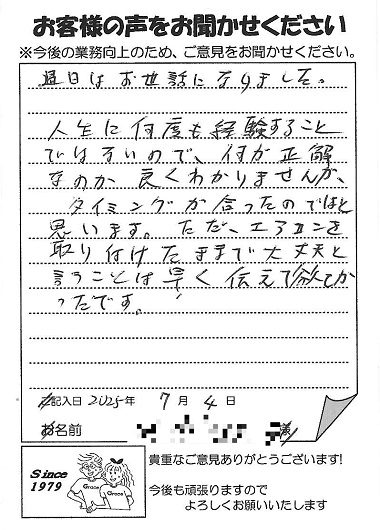 お客様の声をお聞かせください
※今後の業務向上のため、ご意見をお聞かせください。
過日はお世話になりました。
人生に何度も経験すること
ではないので、何が正解
なのか良くわかりませんが、
タイミングが合ったのではと
思います。ただ、エアコンを
取り付けたままで大丈夫と
言うことは早く伝えて欲しか
ったです。
ご記入日 2025年 7月 4日
お名前 様
Since
1979
Grace Grace
貴重なご意見ありがとうございます!
今後も頑張りますので
よろしくお願いいたします